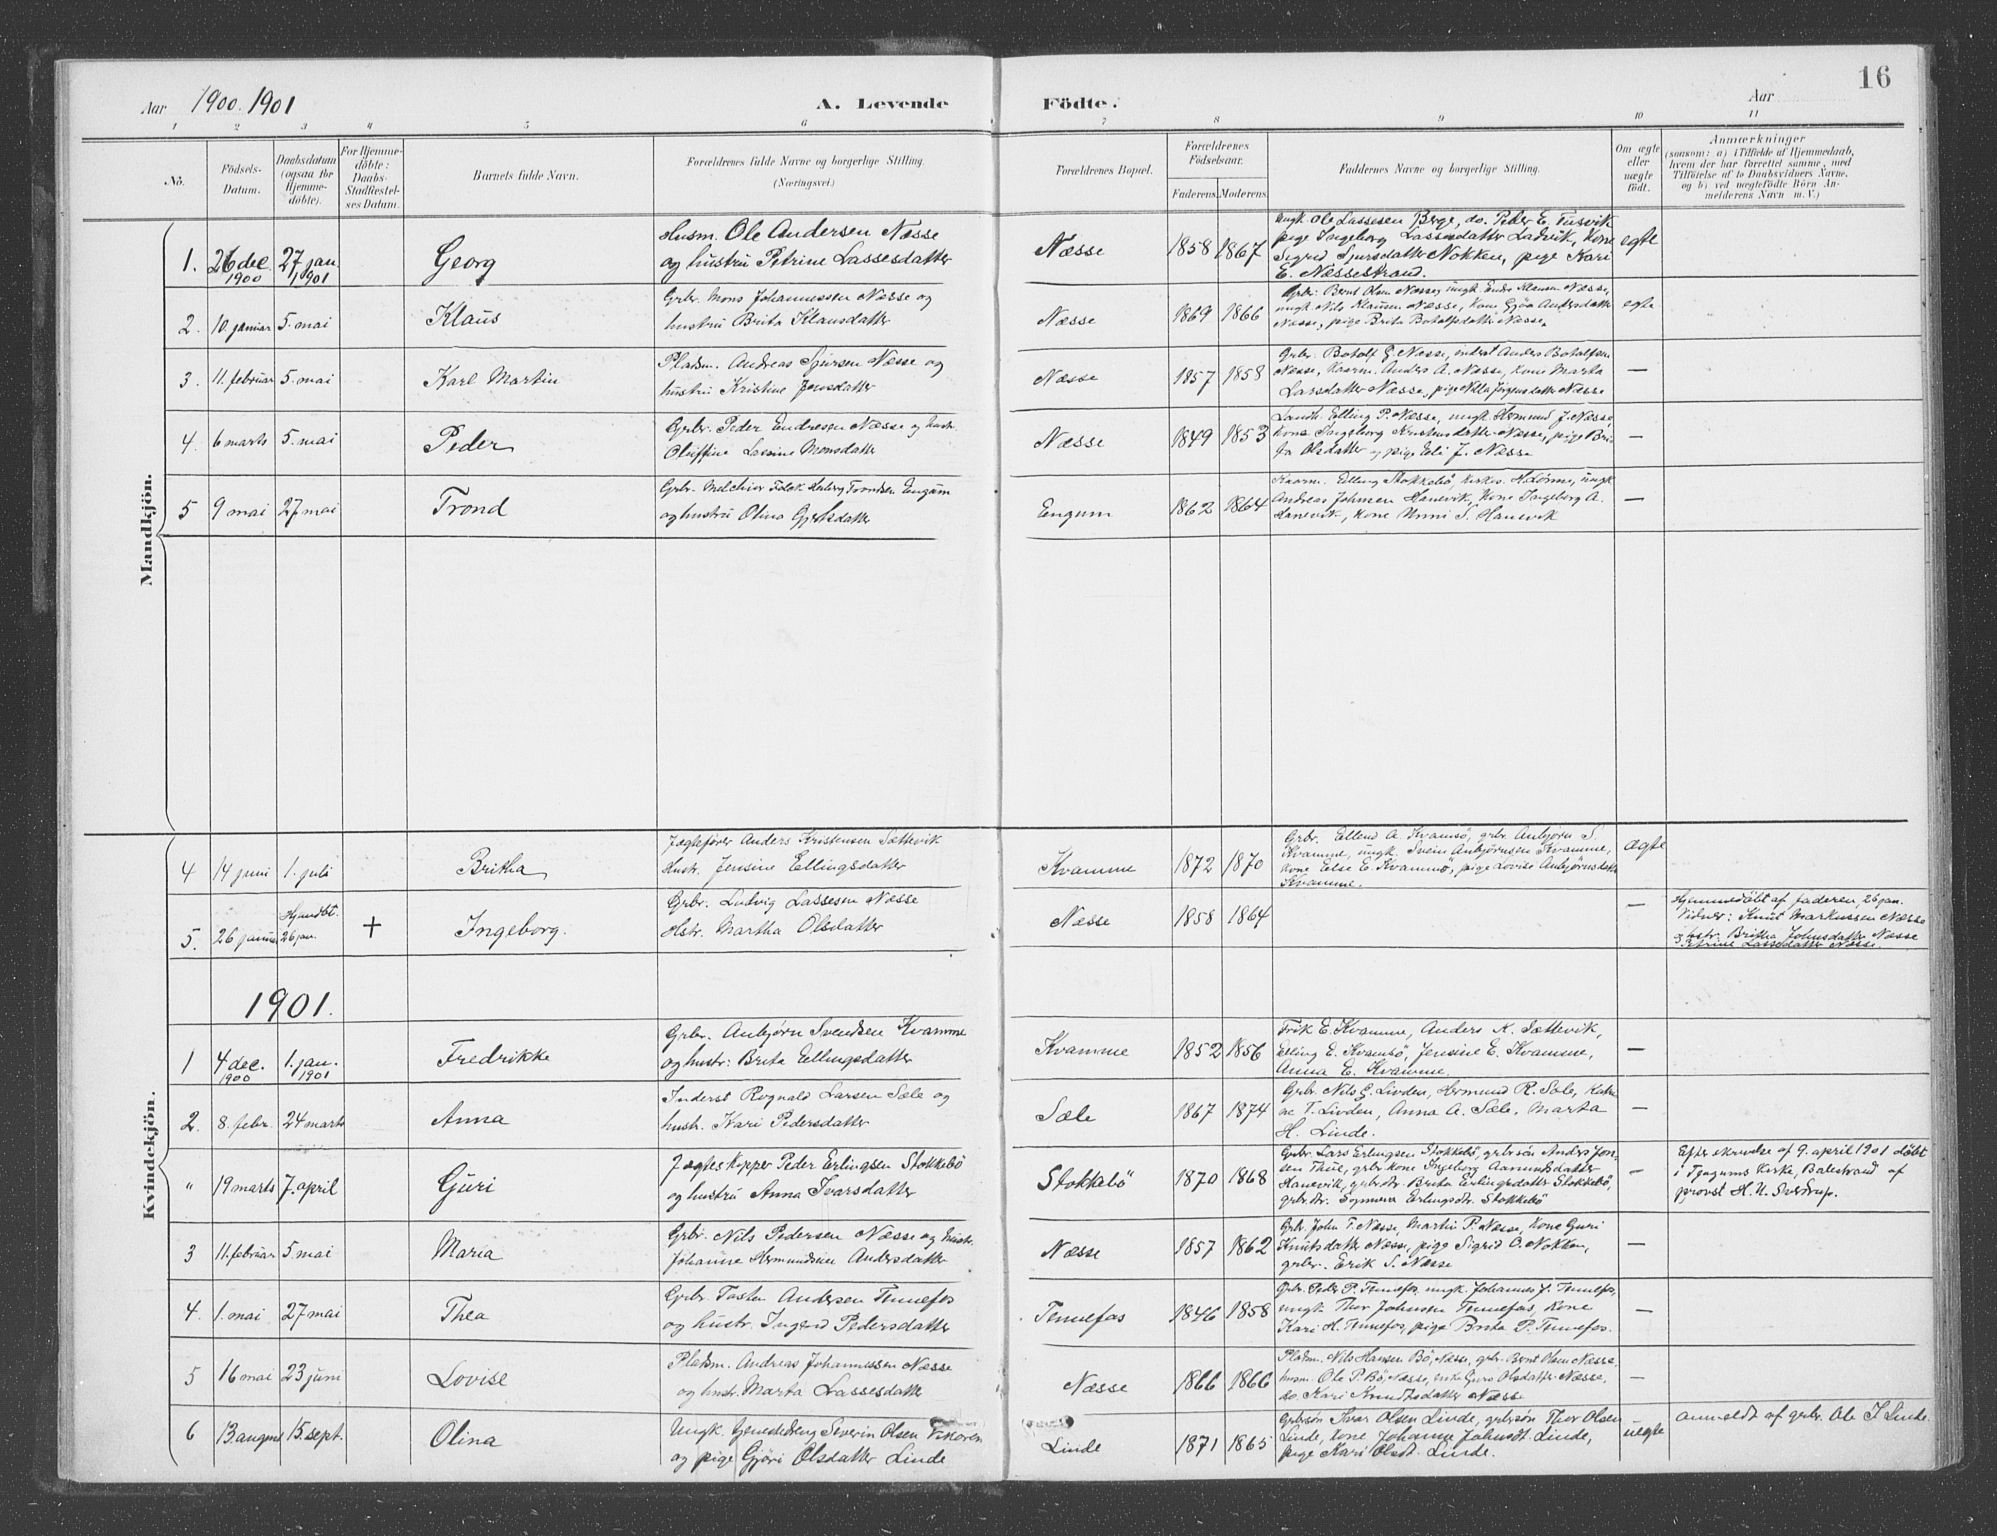 16
Aar 1900. 1901
A. Levende Födte.
Aar
1 2 3 4 5 6 7 8 9 10 11
No.
Födsels-Datum.
Daabsdatum (ogsaa for Hjemme-döbte).
For Hjemme-döbte: Daabs-Stadfæstel-ses Datum.
Barnets fulde Navn.
Forældrenes fulde Navne og borgerlige Stilling. (Næringsvei.)
Forældrenes Bopæl.
Forældrenes Födselsaar.
Faderens. Moderens.
Faddernes Navne og borgerlige Stilling.
Om ægte eller uægte födt.
Anmærkninger
(saasom: a) i Tilfælde af Hjemmedaab, hvem der har forrettet samme, med Tilföielse af to Daabsvidners Navne, og b) ved uægtefödte Börn An-melderens Navn m. V.)
Mandkjön.
1. 26 dec 1900 27 jan. 1901 Georg
Husm. Ole Andersen Næsse
og hustru Petrine Lassesdatter
Næsse 1858 1867
Ungk. Ole Lassesen Berge, do. Peder E. Tusvik
pige Ingeborg Lassesdatter Ladvik, Kone
Sigrid Sjursdatter Nokken, pige Kari
E. Næssestrand.
egte
2. 10. januar 5. mai Klaus
Grbr. Mons Johannessen Næsse og
hustru Brita Klausdatter
Næsse 1869 1866
Grbr. Bernt Olsen Næsse, ungk. Endre Klausen Næsse,
ungk. Nils Klausen Næsse, Kone Gjøa Andersdatter
Næsse, pige Brita Botolfsdatter Næsse.
egte
3. 11. februar 5. mai Karl Martin
Pladsm. Andreas Sjursen Næsse og
hustru Kristine Jensdatter
Næsse 1857 1858
Grbr. Botolf G. Næsse, inderst Anders Botolfsen
Næsse, Kaarm. Anders A. Næsse, Kone Marta
Larsdatter Næsse, pige Nilla Jørgensdatter Næsse
—
4 6 marts 5. mai Peder
Grbr. Peder Endresen Næsse og hustr.
Oliffine Lassine Monsdatter
Næsse 1849 1853
Landh. Elling P. Næsse, ungk. Hermund J. Næsse,
Kone Ingeborg Kristensdatter Næsse, pige Bri-
ta Olsdatter og pige Eli J. Næsse
—
5 9 mai 27 mai Trond
Grbr. Melchior Falck Herberg Trondsen Engum
og hustru Olina Gjertsdatter
Engum 1862 1864
Kaarm. Elling Stokkebö, Kirkes. H. Lønne, ungk
Andreas Johnsen Hanevik, Kone Ingeborg A.
Hanevik, Kone Unni S. Hanevik
—
Kvindekjön.
4 14 juni 1. juli Britha
Jægtefører Anders Kristensen Sættevik
Hustr. Jensine Ellingsdatter
Kvamme 1872 1870
Grbr. Ellend A. Kvamsö, grbr. Anbjørn S.
Kvamme, ungk. Svein Anbjørnsen Kvamme,
Kone Else E. Kvamsö, pige Lovise Anbjørnsdatter
Kvamme.
ægte
5. 26 januar Hjmdbt. 26 jan. + Ingeborg.
Grbr. Ludvig Lassesen Næsse
Hstr. Martha Olsdatter
Næsse 1858 1864
—
Hjemmedöbt af faderen, 26 jan.
Vidner: Knut Markussen Næsse
hstr. Britha Johnsdatter Næsse
Petrine Lassesdatter Næsse.
1901.
1 4 dec. 1900 1. jan. 1901 Fredrikke
Grbr. Anbjørn Svendsen Kvamme
og hustr: Brita Ellingsdatter
Kvamme 1852 1856
Erik E. Kvamme, Anders K. Sættevik,
Elling E. Kvamsö, Jensine E. Kvamme,
Anna E. Kvamme.
—
2. 8. febr. 24 marts Anna
Inderst Rognald Larsen Sæle og
hustr. Kari Pedersdatter
Sæle 1867 1874
Grbr. Nils G. Livden, Hermund R. Sæle,
T. Livden, Anna A. Sæle. Marta
H. Linde.
—
" 19 marts 7. april Guri
Jægteskipper Peder Erlingsen Stokkebö
og hustru Anna Ivarsdatter
Stokkebö 1870 1868
Grbr. Lars Erlingsen Stokkebö, grbrsön Anders Jon-
sen Thue, grbr.kone Ingeborg Aamundsdatter
Hanevik, grbrdtr. Brita Erlingsdatter Stokkebö,
grbrdtr. Synneva Erlingsdtr. Stokkebö
—
Efter skrivelse af 9. april 1901 döbt
i Tjugums Kirke, Balestrand af
provst H. U. Sverdrup.
3 11. februar 5. mai Maria
Grbr. Nils Pedersen Næsse og hustr.
Johanne Hermundsine Andersdatter
Næsse 1857 1862
Grbr. John T. Næsse, Martin P. Næsse, Kone Guri
Knutsdatter Næsse, pige Sigrid O. Nokken,
grbr. Erik S. Næsse
—
4. 1. mai 27 mai Thea
Grbr. Tosten Andersen Tennefos
og hustr. Ingerd Pedersdatter
Tennefos 1846 1858
Grbr. Peder P. Tennefos, ungk. Johannes J. Tennefos,
ungk. Thor Johnsen Tennefos, Kone
Kari H. Tennefos, pige Brita P. Tennefos.
—
5 16 mai 23 juni Lovise
Pladsm. Andreas Johannessen Næsse
og hustr. Marta Lassesdatter
Næsse 1866 1866
Pladsm. Nils Hansen Bö, Næsse, grbr. Bernt Olsen Næsse,
husm. Ole P. Bö, Næsse, enke Guro Olsdatter Næsse,
do. Kari Knudtsdatter Næsse
—
6 13 august 15. sept. Olina
Ungk. Severin Olsen Vikören
og pige Gjöri Olsdatter Linde
Linde 1871 1865
Grbrsön Ivar Olsen Linde, grbrsön Thor Olsen
Linde, Kone Johanne Johnsdt. Linde,
pige Kari Olsdt. Linde.
uegte
anmeldt af grbr. Ole I Linde.